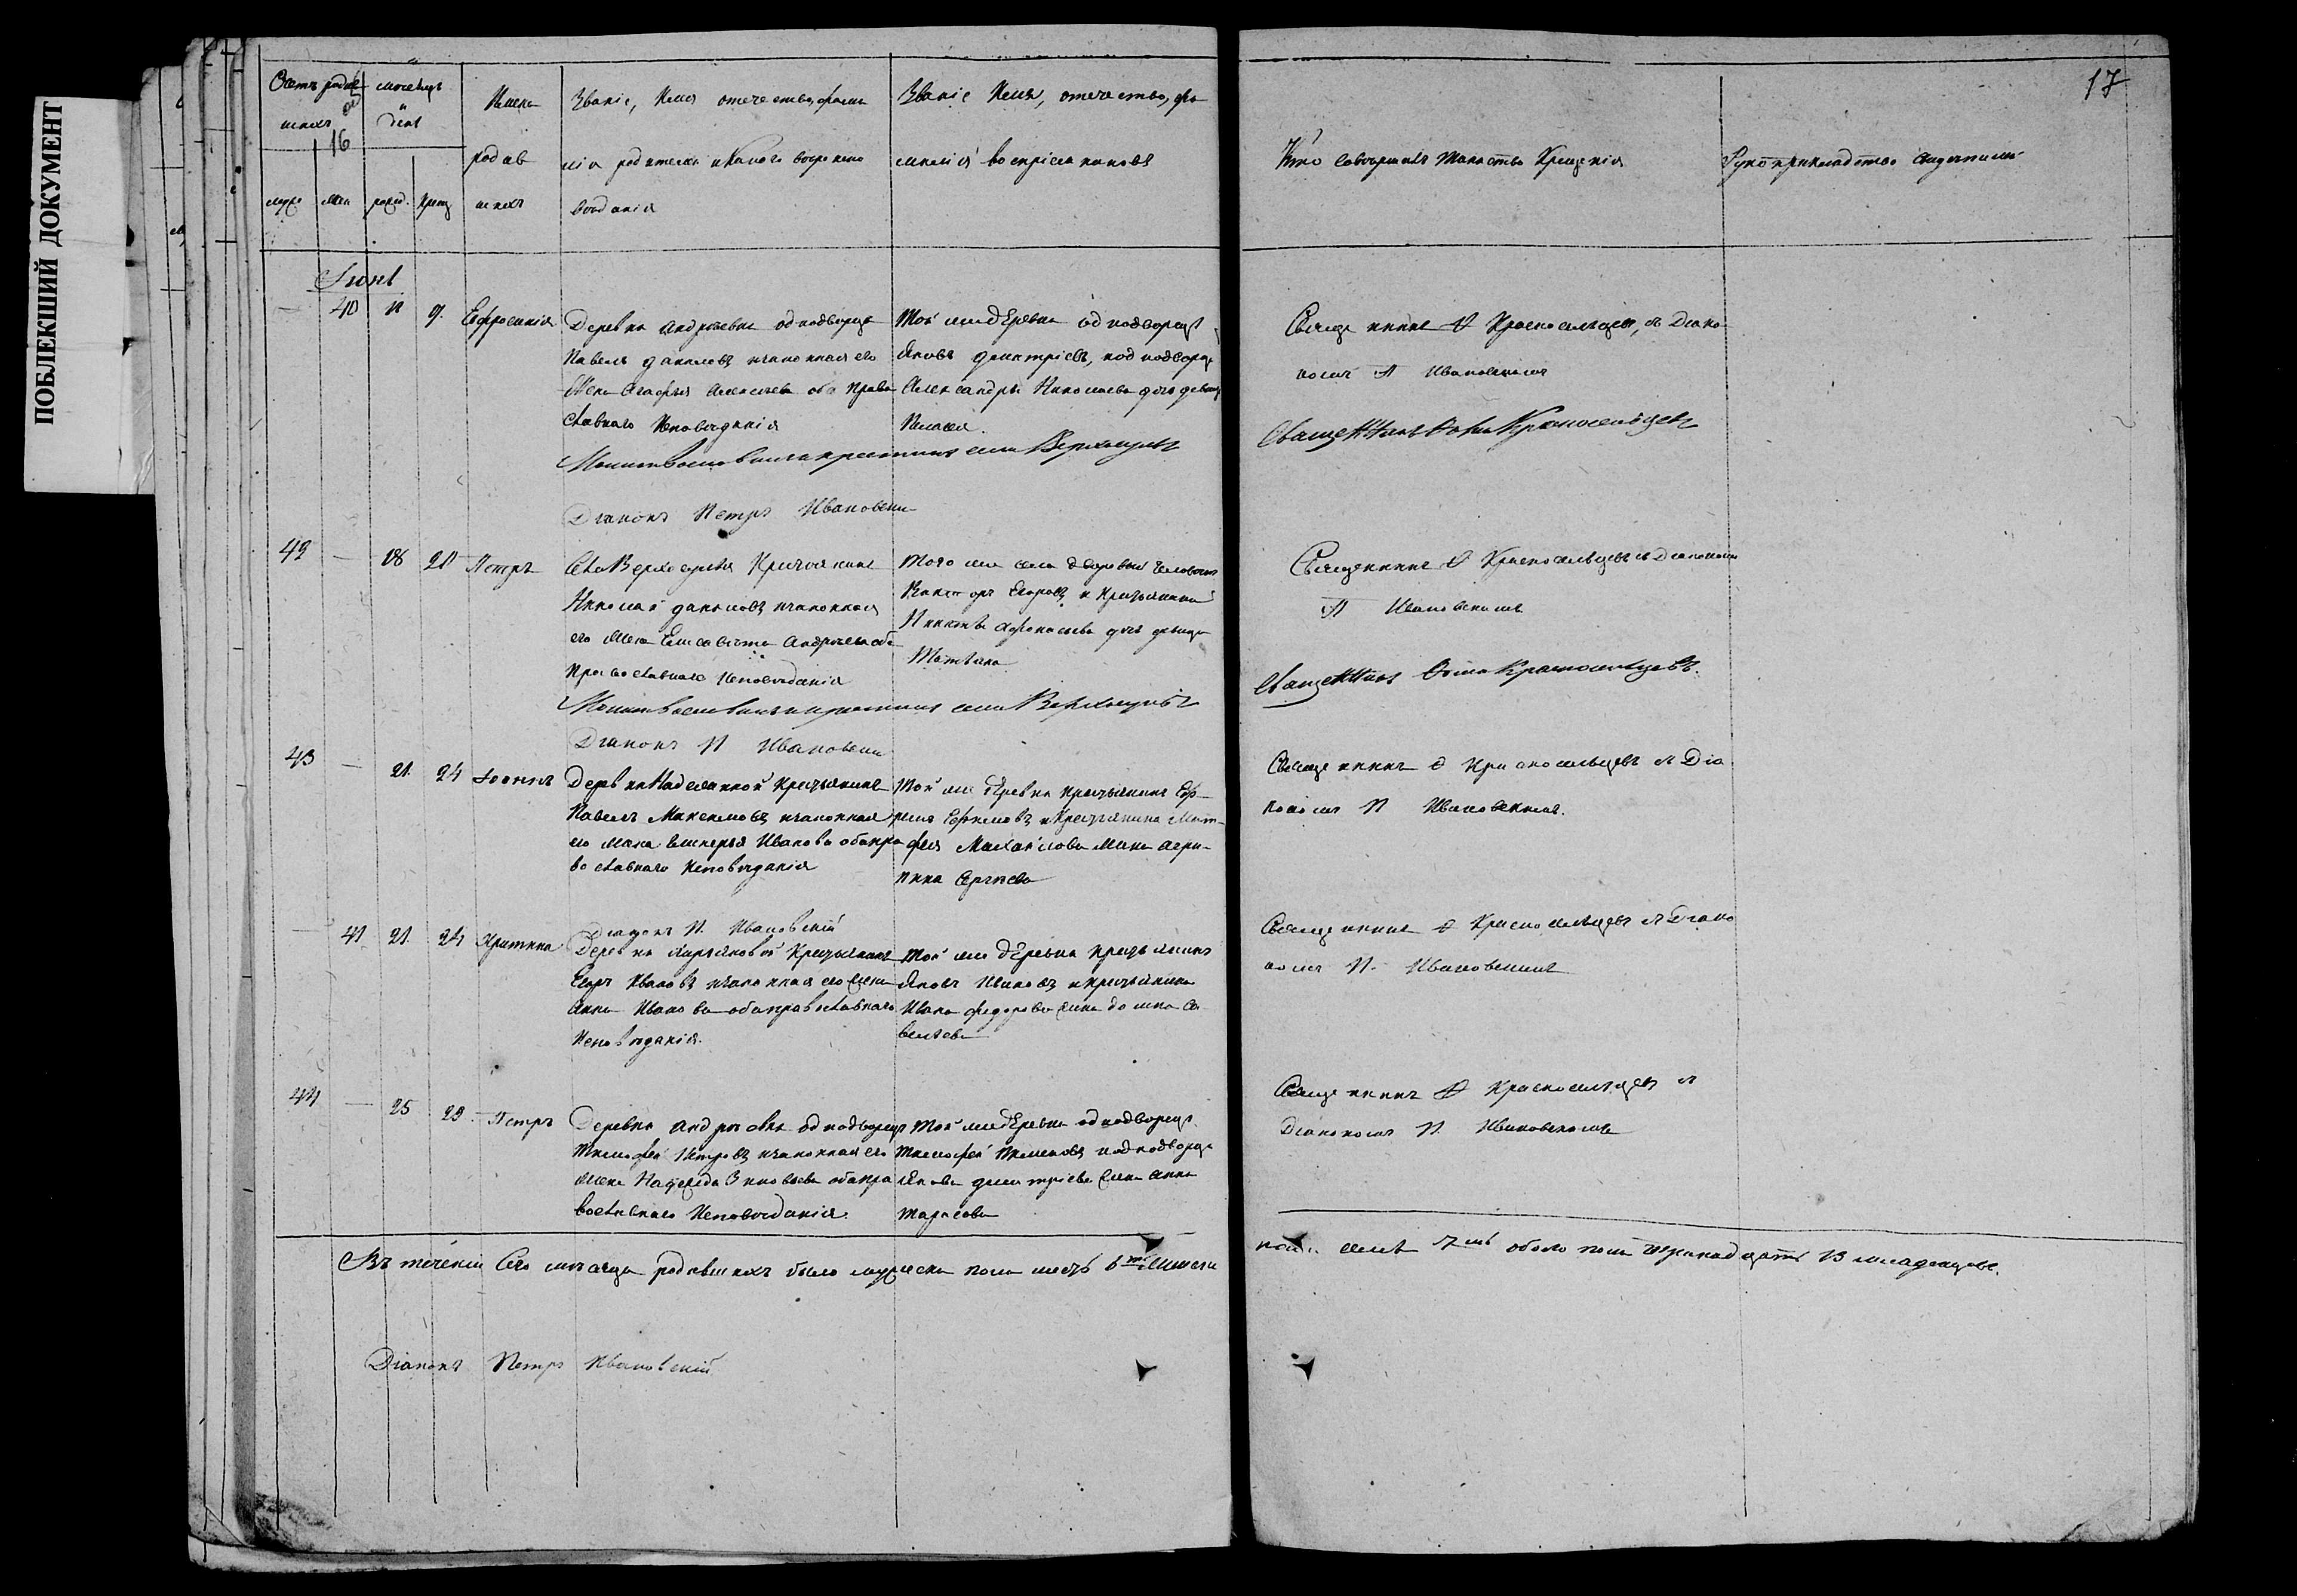 ПОБЛЕКШИЙ ДОКУМЕНТ
Счетъ родив
шихъ
16
мѣсяцъ
и
день
муже
жен
рожд.
крещ
Имена
родив
шихъ
Званіе, Имя отечество, фами
лія родителей и какого вѣроиспо
вѣданія
Званіе Имя, отечество, фа
милія воспріемниковъ
Кто совершалъ таинство Крещенія
Рукоприкладство свидѣтелей
17
Іюнь
— 40 11 9. Евфросинія
Деревни Андреевки однодворецъ
Павелъ Даниловъ и законная его
Жена Агафья Алексѣева оба право
славнаго Исповѣданія
Той же деревни однодворецъ
Яковъ Дмитріевъ, и однодворца
Александра Николаева дочь девица
Пелагея
Священникъ Ѳ Красносельцевъ, съ Діако
номъ П Ивановскимъ
Священникъ Ѳома Красносельцевъ
Молитвословилъ и крестилъ села
Діаконъ Петръ Ивановски
42 — 18 20 Петръ
Крестьянинъ
Николай Даниловъ и законная
его жена Елисавета Андреева оба
православнаго Исповѣданія
Того же села дворовый человекъ
Викторъ Егоровъ и Крестьянина
Никиты Афонасьева дочь девица
Татьяна
Священникъ Ѳ Красносельцевъ съ Діакономъ
П Ивановскимъ
Священникъ Ѳома Красносельцевъ.
Молитвословилъ и крестилъ села
Діаконъ П Ивановски
43 — 21. 24 Іоаннъ
Крестьянинъ
Павелъ Максимовъ и законная
его жена Гликерья Иванова оба пра
вославнаго Исповѣданія
Той же деревни крестьянинъ Еф
римъ Ефимовъ и Крестьянина Мат
фея Михайлова жена Агри
пина Сергѣева
Священникъ Ѳ Красносельцевъ съ Діа
кономъ П Ивановскимъ.
Діаконъ П. Ивановскій
— 41 21. 24 Христина
Крестьянинъ
Егоръ Ивановъ и законная его жена
Анна Иванова оба православнаго
Исповѣданія.
Той же деревни крестьянинъ
Яковъ Ивановъ и крестьянина
Ивана Федорова жена Домна Са
вельева
Священникъ Ѳ Красносельцевъ съ Діако
номъ П. Ивановскимъ
44 — 25 29. Петръ
Деревни Андреевки однодворецъ
Тимофей Петровъ и законная его
жена Надежда Зиновьева оба пра
вославнаго Исповѣданія.
Той же деревни однодворецъ
Тимофей Пименовъ и однодворца
Якова Дмитріева жена Анна
Тарасова
Священникъ Ѳ Красносельцевъ съ
Діакономъ П. Ивановскимъ
Въ теченіи Сего мѣсяца родившихъ было мужеска пола шесть 6ть женска
пола семь 7мь обоего пола тринадцать 13 младенцевъ.
Діаконъ Петръ Ивановскій